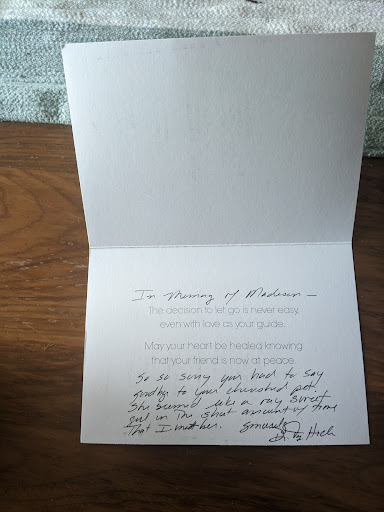 In Memory of Madison —
The decision to let go is never easy,
even with love as your guide.
May your heart be healed knowing
that your friend is now at peace.
So so sorry you had to say
goodbye to your cherished pet.
She seemed like a very sweet
girl in the short amount of time
that I met her. Sincerely,
Dr.